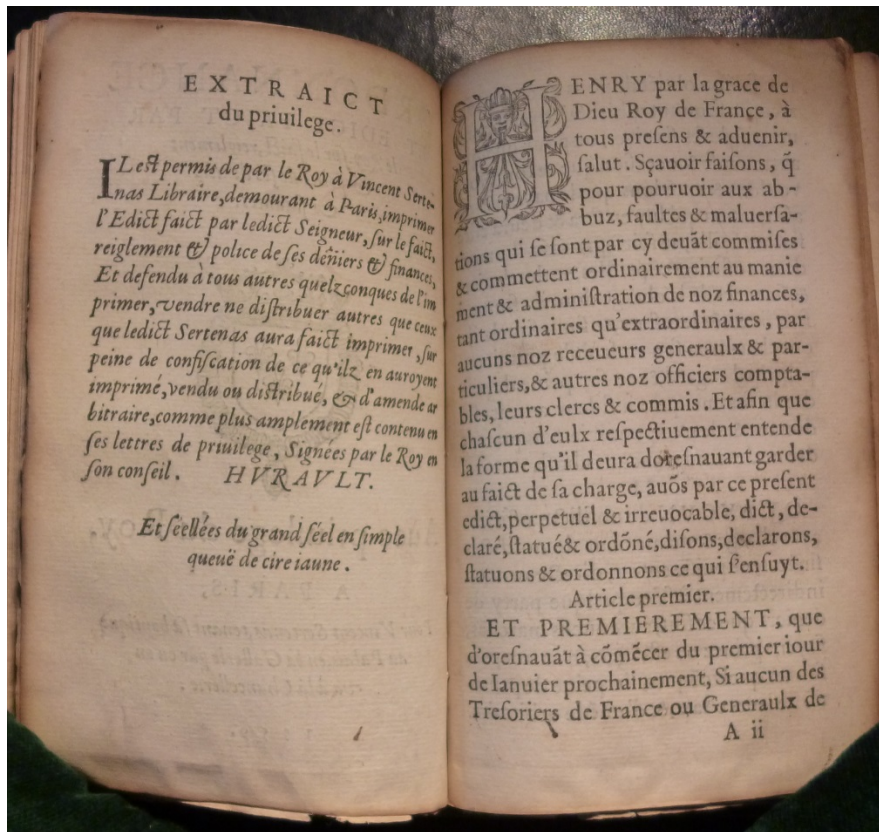 EXTRAICT
du priuilege.
IL eſt permis de par le Roy à Vincent Serte-
nas Libraire, demourant à Paris, imprimer
l'Edict faict par ledict Seigneur, ſur le faict,
reiglement & police de ſes deniers & finances,
Et defendu à tous autres quelzconques de l'im
primer, vendre ne diſtribuer autres que ceux
que ledict Sertenas aura faict imprimer, ſur
peine de confiſcation de ce qu'ilz en auroyent
imprimé, vendu ou diſtribué, & d'amende ar
bitraire, comme plus amplement eſt contenu en
ſes lettres de priuilege, Signées par le Roy en
ſon conſeil. HVRAVLT.
Et ſéellées du grand ſéel en ſimple
queuë de cire iaune.
HENRY par la grace de
Dieu Roy de France, à
tous preſens & aduenir,
ſalut. Sçauoir faiſons, q̃
pour pouruoir aux ab-
buz, faultes & maluerſa-
tions qui ſe ſont par cy deuãt commiſes
& commettent ordinairement au manie
ment & adminiſtration de noz finances,
tant ordinaires qu'extraordinaires, par
aucuns noz receueurs generaulx & par-
ticuliers, & autres noz officiers compta-
bles, leurs clercs & commis. Et afin que
chaſcun d'eulx reſpectiuement entende
la forme qu'il deura doreſnauant garder
au faict de ſa charge, auõs par ce preſent
edict, perpetuel & irreuocable, dict, de-
claré, ſtatué & ordõné, diſons, declarons,
ſtatuons & ordonnons ce qui ſ'enſuyt.
Article premier.
ET PREMIEREMENT, que
d'oreſnauãt à cõmẽcer du premier iour
de Ianuier prochainement, Si aucun des
Treſoriers de France ou Generaulx de
A ii